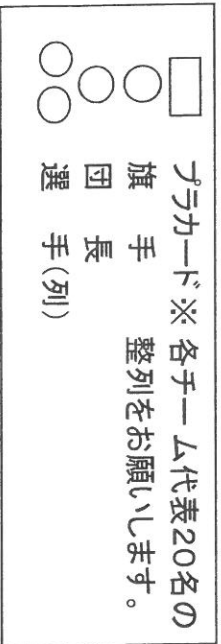 プラカード※ 各チーム代表20名の
旗 手 整列をお願いします。
団 長
選 手(列)